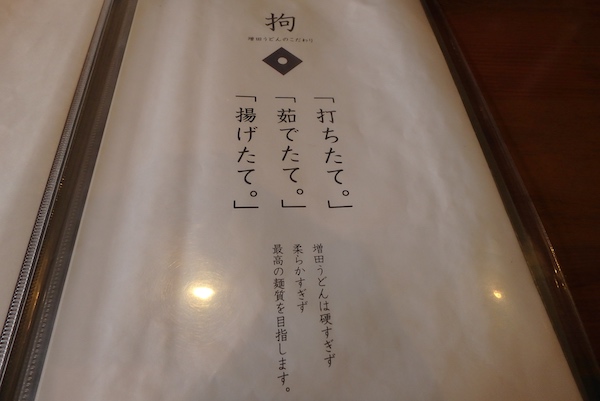 拘
増田うどんのこだわり
「打ちたて。」
「茹でたて。」
「揚げたて。」
増田うどんは硬すぎず
柔らかすぎず
最高の麺質を目指します。